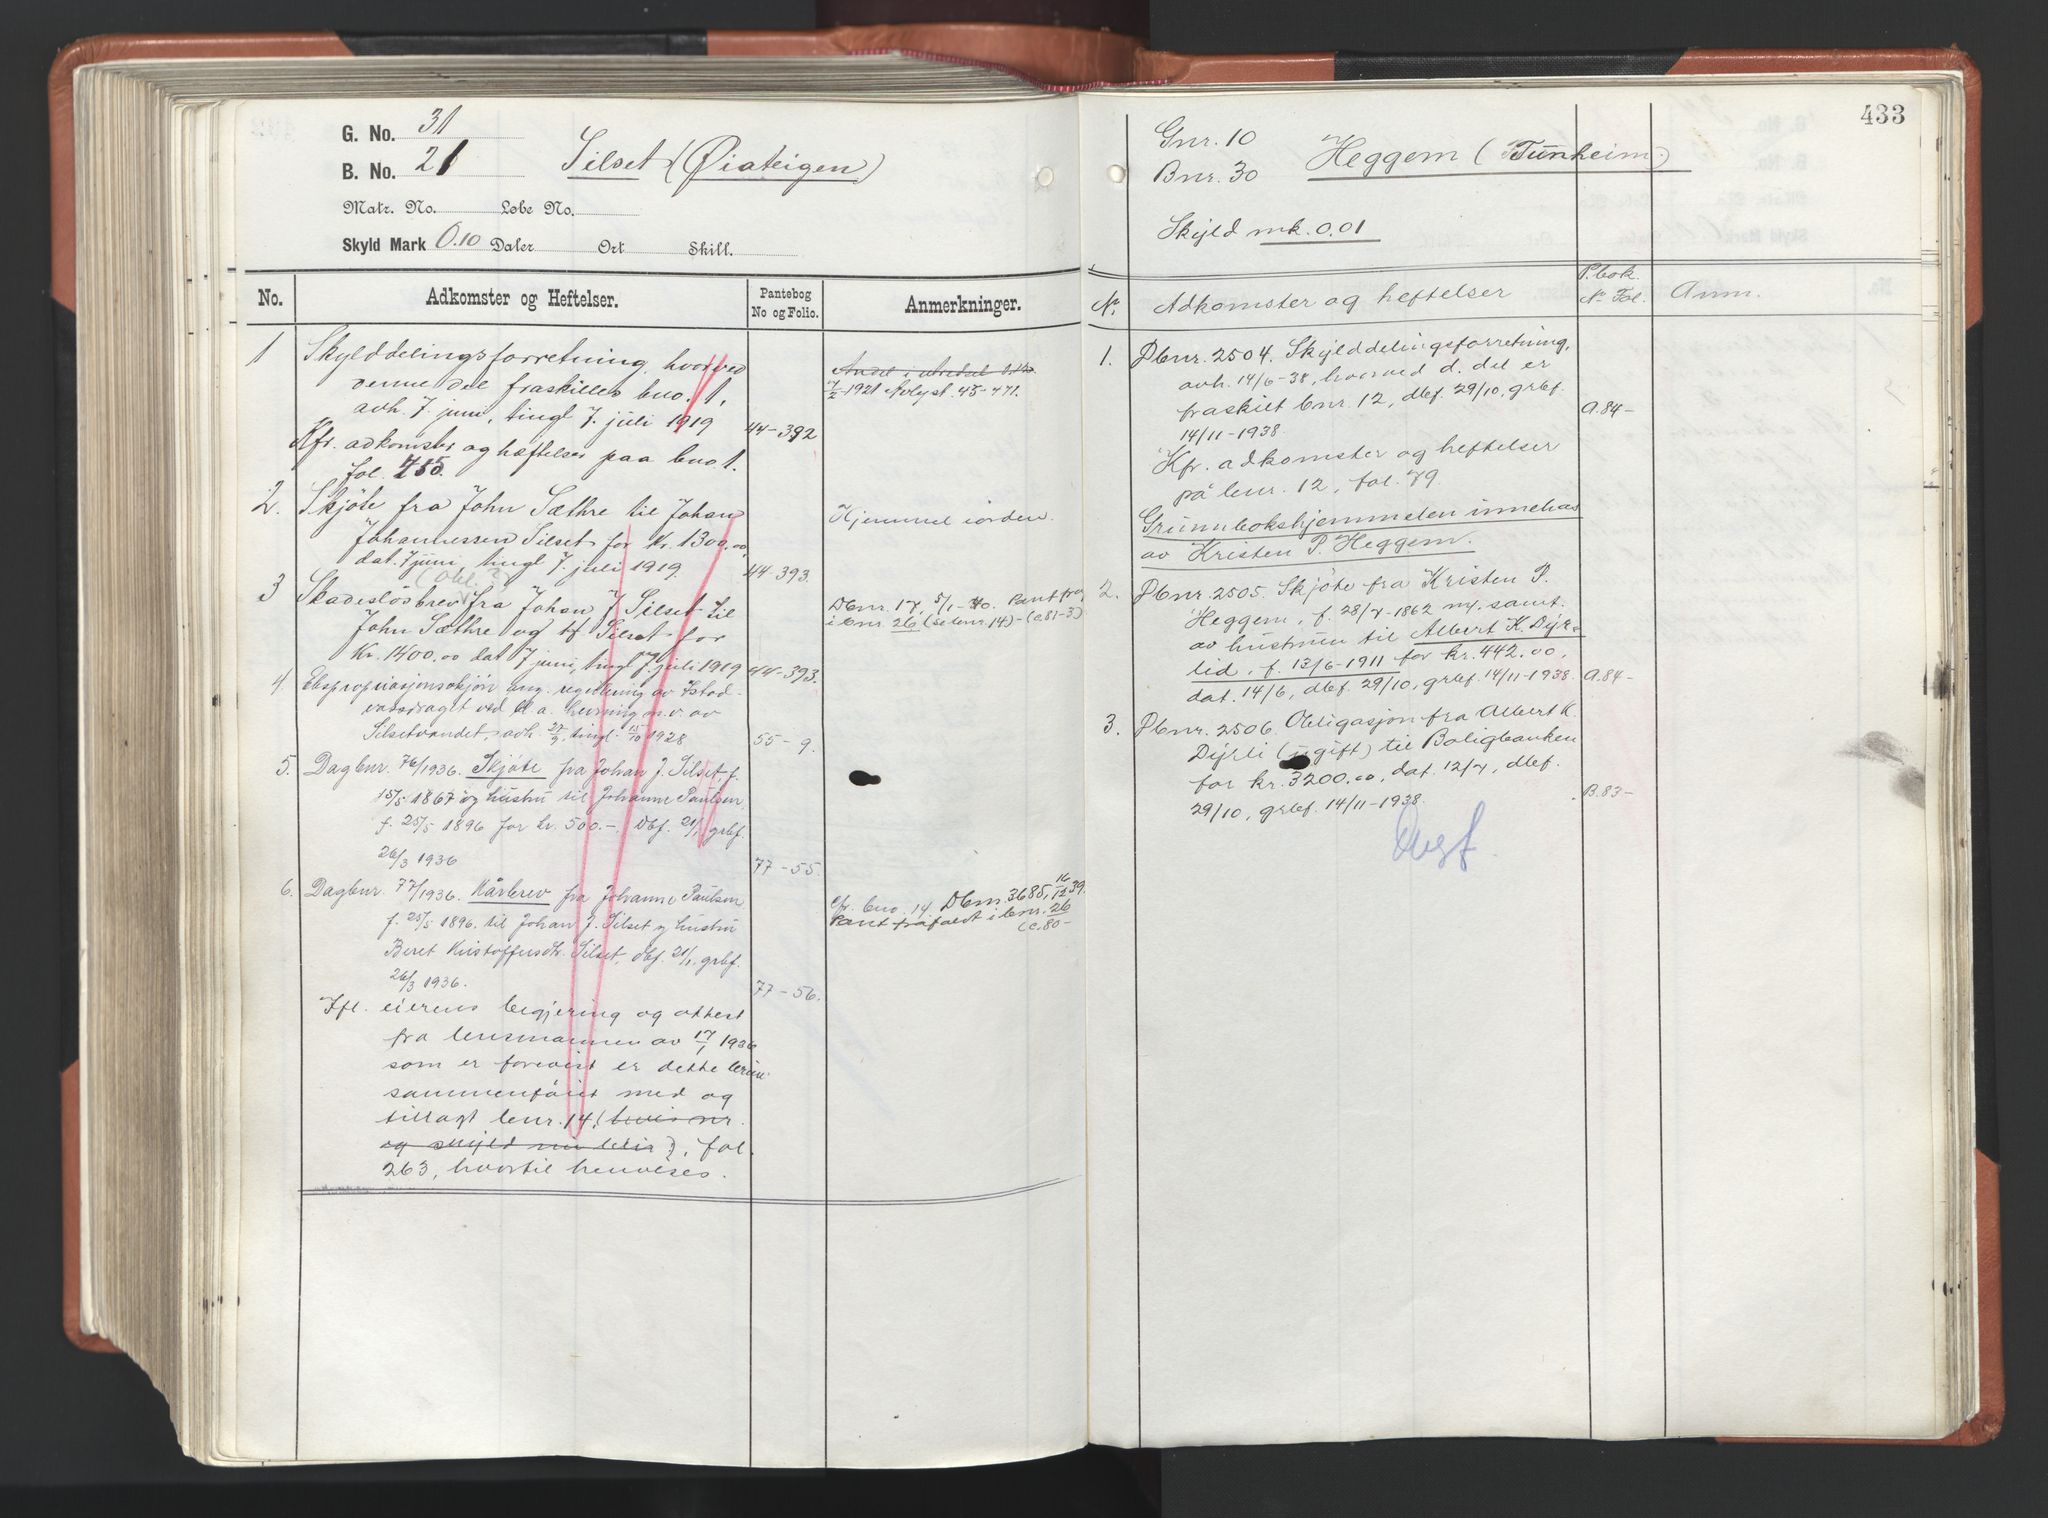 G. No. 31
B. No. 21
Silset (Øiateigen)
Matr. No. Løbe No.
Skyld Mark 0.10 Daler Ort Skill.
No. Adkomster og Heftelser. Pantebog No og Folio. Anmerkninger.
1 Skylddelingsforretning, hvorved
denne del fraskilles bno. 1,
avh. 7. juni, tingl 7. juli 1919 44-392
Kfr. adkomster og hæftelser paa bno 1.
fol. 455.
Andel i
7/2 1921 Avlyst 45-471.
2. Skjöte fra John Sæthre til Johan
Johannessen Silset for Kr. 1300.00,
dat. 7 juni, tingl 7. juli 1919. 44-393.
Hjemmel iorden.
(Obl.?)
3 Skadeslösbrev fra Johan J Silset til
John Sæthre og Silset for
Kr. 1400.00 dat 7 juni, tingl 7. juli 1919 44-393.
Dbnr. 17, 5/1-40. Pant fra
i bnr. 26 (se bnr. 14) - (c.81-3)
4. Ekspropriasjonsskjön ang. regulering av Istad-
vassdraget ved bl a. hevning m.v. av
Silsetvandet, avh. 27/9, tingl. 15/10 1928 55-9.
5. Dagbnr. 76/1936. Skjöte fra Johan J. Silset, f.
15/5 1867 og hustru til Johanne Paulsen,
f. 25/5 1896 for kr. 500.-. Dbf. 21/1, grbf.
26/3 1936 77-55.
6. Dagbnr. 77/1936. Kårbrev fra Johanne Paulsen
f. 25/5 1896. til Johan J. Silset og hustru
Beret Kristoffersdtr. Silset, dbf. 21/1, grbf.
26/3 1936. 77-56.
cfr. bno. 14 Dbnr. 3685, 16/12 39.
Pant frafaldt i bnr. 26
(c.80-
Ifl. eierens begjering og attest
fra lensmannen av 17/1 1936
som er forevist er dette brnr.
sammenföiet med og
tillagt bnr. 14, (hvis nr
og skyld nu blir ), fol.
263, hvortil henvises.
433
Gnr. 10
Bnr. 30
Heggem (Tunheim)
Skyld mk. 0,01
Nr. Adkomster og heftelser P.bok. Nr. Fol. Anm.
1. Dbnr. 2504. Skylddelingsforretning,
avh. 14/6-38, hvorved d. del er
fraskilt bnr. 12, dbf. 29/10, grbf.
14/11-1938. A.84-
Kfr. adkomster og heftelser
på bnr. 12, fol. 79.
Grunnbokshjemmelen innehas
av Kristen P. Heggem.
2. Dbnr. 2505. Skjöte fra Kristen P.
Heggem, f. 28/7-1862 m/ samt.
av hustruen til Albert K. Dyr-
lid, f. 13/6-1911 for kr. 442.00,
dat. 14/6, dbf. 29/10, grbf. 14/11-1938. A.84-
3. Dbnr. 2506. Obligasjon fra Albert K.
Dyrli (ugift) til Boligbanken
for kr. 3200.00, dat. 12/7, dbf.
29/10, grbf. 14/11-1938. B.83-